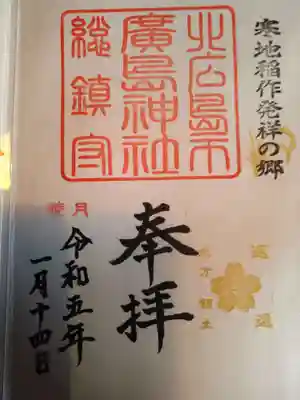 寒地稲作発祥の郷
北広島市
廣島神社
総鎮守
奉拝
月
令和五年
一月十四日